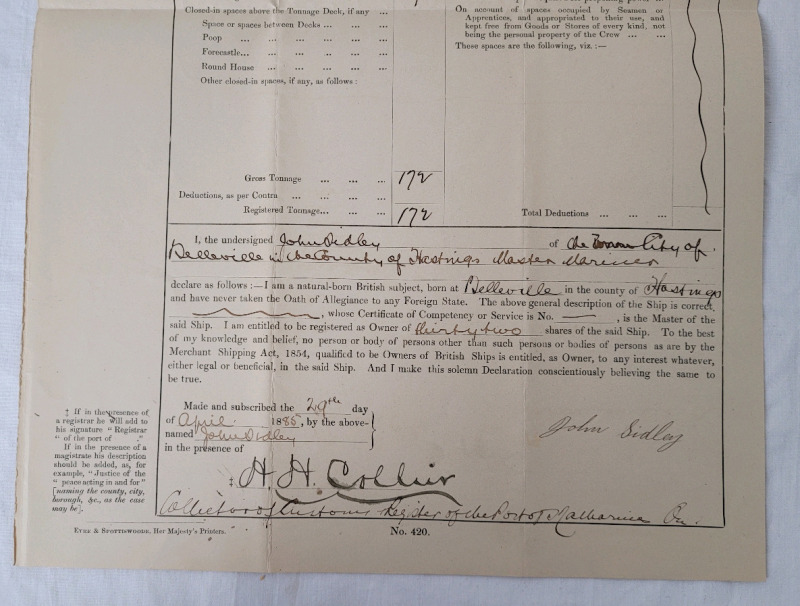 Closed-in spaces above the Tonnage Deck, if any ...
Space or spaces between Decks ... ... ...
Poop ... ... ... ... ...
Forecastle... ... ... ... ...
Round House ... ... ... ...
Other closed-in spaces, if any, as follows :
Gross Tonnage ... ... ... 172
Deductions, as per Contra ... ... ... ...
Registered Tonnage... ... ... 172
On account of spaces occupied by Seamen or
Apprentices, and appropriated to their use, and
kept free from Goods or Stores of every kind, not
being the personal property of the Crew ... ...
These spaces are the following, viz. :—
Total Deductions ... ... ...
I, the undersigned John Sidley of the City of
Belleville in the County of Hastings Master Mariner
declare as follows :—I am a natural-born British subject, born at Belleville in the county of Hastings
and have never taken the Oath of Allegiance to any Foreign State. The above general description of the Ship is correct.
, whose Certificate of Competency or Service is No. — , is the Master of the
said Ship. I am entitled to be registered as Owner of thirty two shares of the said Ship. To the best
of my knowledge and belief, no person or body of persons other than such persons or bodies of persons as are by the
Merchant Shipping Act, 1854, qualified to be Owners of British Ships is entitled, as Owner, to any interest whatever,
either legal or beneficial, in the said Ship. And I make this solemn Declaration conscientiously believing the same to
be true.
Made and subscribed the 29th day
of April 1885, by the above-
named John Sidley
in the presence of
John Sidley
‡ H. H. Collier
Collector of Customs Register of the Port of St Catharines On.
‡ If in the presence of
a registrar he will add to
his signature "Registrar
"of the port of ."
If in the presence of a
magistrate his description
should be added, as, for
example, "Justice of the
"peace acting in and for"
[naming the county, city,
borough, &c., as the case
may be].
EYRE & SPOTTISWOODE, Her Majesty's Printers.
No. 420.